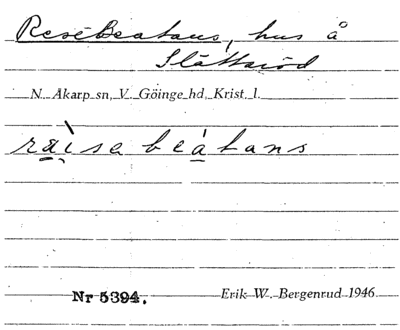 Resebeatans, hus å
Slättaröd
N. Åkarp sn, V. Göinge hd, Krist. l.
raisa beatans
Nr 5394.
Erik W. Bergenrud 1946